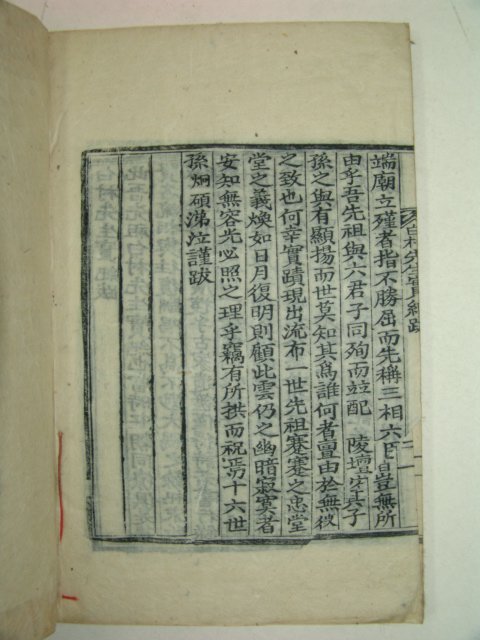 端廟立殣者指不勝屈而先稱三相六臣是豈無所
由乎吾先祖與六君子同殉而竝配 陵壇宇其子
孫之與有顯揚而世莫知其爲誰何者亶由於無徴
之致也何幸實蹟現出流布一世先祖蹇蹇之忠堂
堂之義煥如日月復明則顧此雲仍之幽暗寂寞者
安知無容光必照之理乎竊有所拱而祝焉十六世
孫炯碩涕泣謹跋
白村先生實紀跋